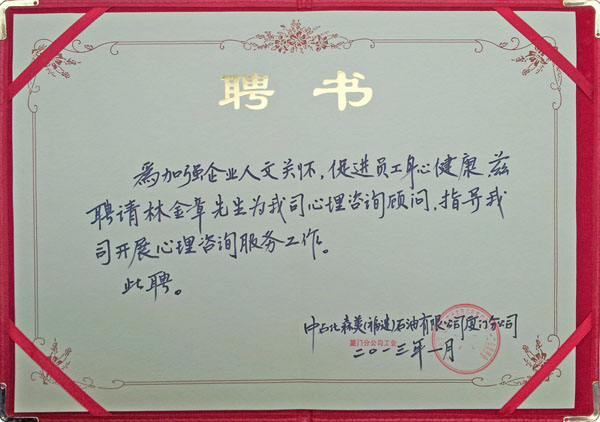 聘书
為加强企业人文关怀，促进员工身心健康，兹
聘请林金章先生为我司心理咨询顾问，指导我
司开展心理咨询服务工作。
此聘。
中石化森美(福建)石油有限公司厦门分公司
厦门分公司工会
二〇一三年一月